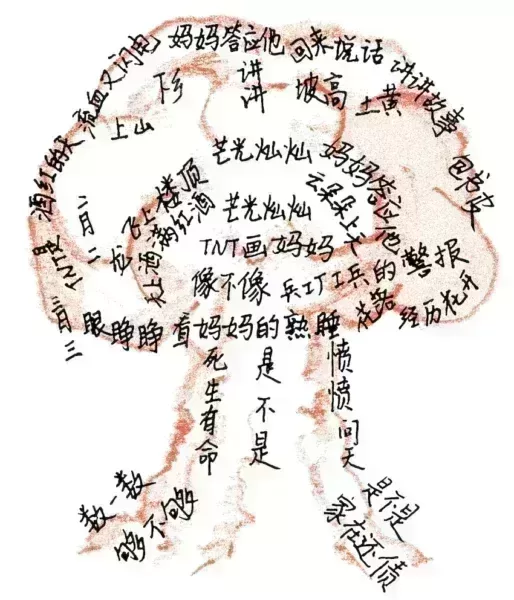 酒红的天流血又闪电
妈妈答应他
回来说话
讲讲故事
回书皮
下乡
讲讲
坡高
土黄
上山
芒光灿灿
妈妈答过他
飞上楼顶
云朵朵上天
芒光灿灿
天上酒满红酒
二月二龙
TNT画妈妈
TNT是
像不像
兵工厂工兵的
警报
花落
经历花开
三月三
眼睁睁
看妈妈的熟睡
死生有命
是不是
愤愤问天
数一数
够不够
是不是
家在还债